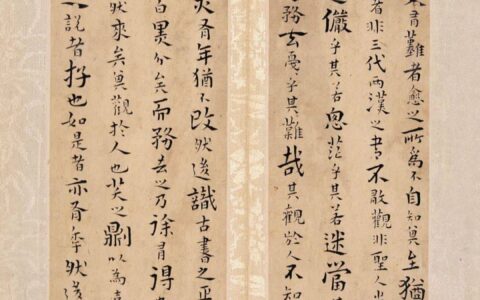 有難者愈之所為不自知其至猶
者非三代兩漢之書不敢觀非聖人
儼乎其若思茫乎其若迷當
務去戛乎其難哉其觀於人不知
亦有年猶不改然後識古書之正
白黑分矣而務去之乃徐有得
然來矣其觀於人也笑之則以為喜
說者存也如是者亦有年然後